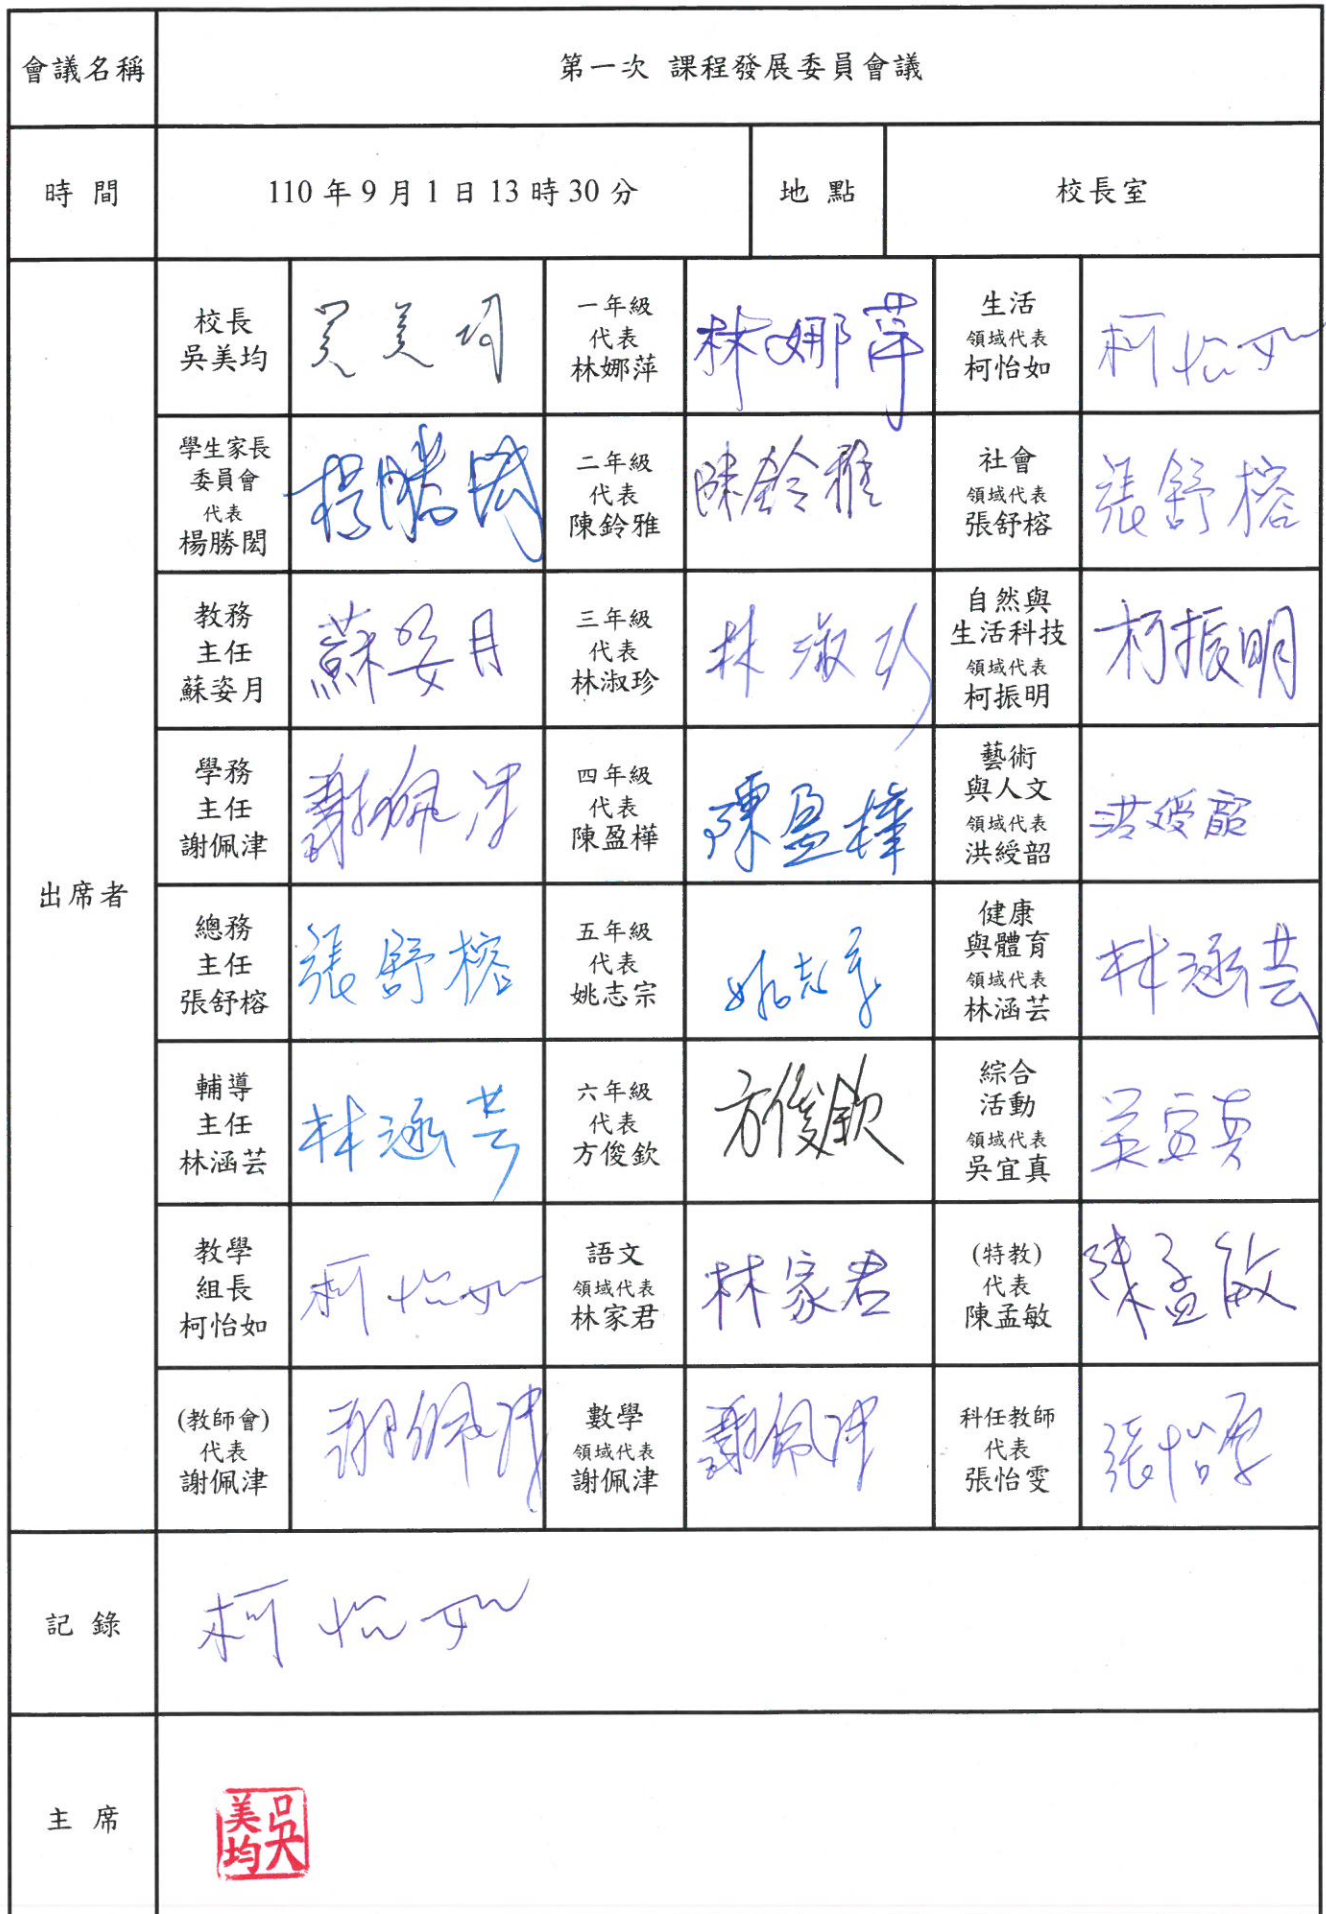 會議名稱
第一次 課程發展委員會議
時 間
110 年 9 月 1 日 13 時 30 分
地 點
校長室
出席者
校長
吳美均
吳美均
一年級
代表
林娜萍
林娜萍
生活
領域代表
柯怡如
柯怡如
學生家長
委員會
代表
楊勝閎
楊勝閎
二年級
代表
陳鈴雅
陳鈴雅
社會
領域代表
張舒榕
張舒榕
教務
主任
蘇姿月
蘇姿月
三年級
代表
林淑珍
林淑珍
自然與
生活科技
領域代表
柯振明
柯振明
學務
主任
謝佩津
謝佩津
四年級
代表
陳盈樺
陳盈樺
藝術
與人文
領域代表
洪綬韶
洪綬韶
總務
主任
張舒榕
張舒榕
五年級
代表
姚志宗
姚志宗
健康
與體育
領域代表
林涵芸
林涵芸
輔導
主任
林涵芸
林涵芸
六年級
代表
方俊欽
方俊欽
綜合
活動
領域代表
吳宜真
吳宜真
教學
組長
柯怡如
柯怡如
語文
領域代表
林家君
林家君
(特教)
代表
陳孟敏
陳孟敏
(教師會)
代表
謝佩津
謝佩津
數學
領域代表
謝佩津
謝佩津
科任教師
代表
張怡雯
張怡雯
記 錄
柯怡如
主 席
吳美均